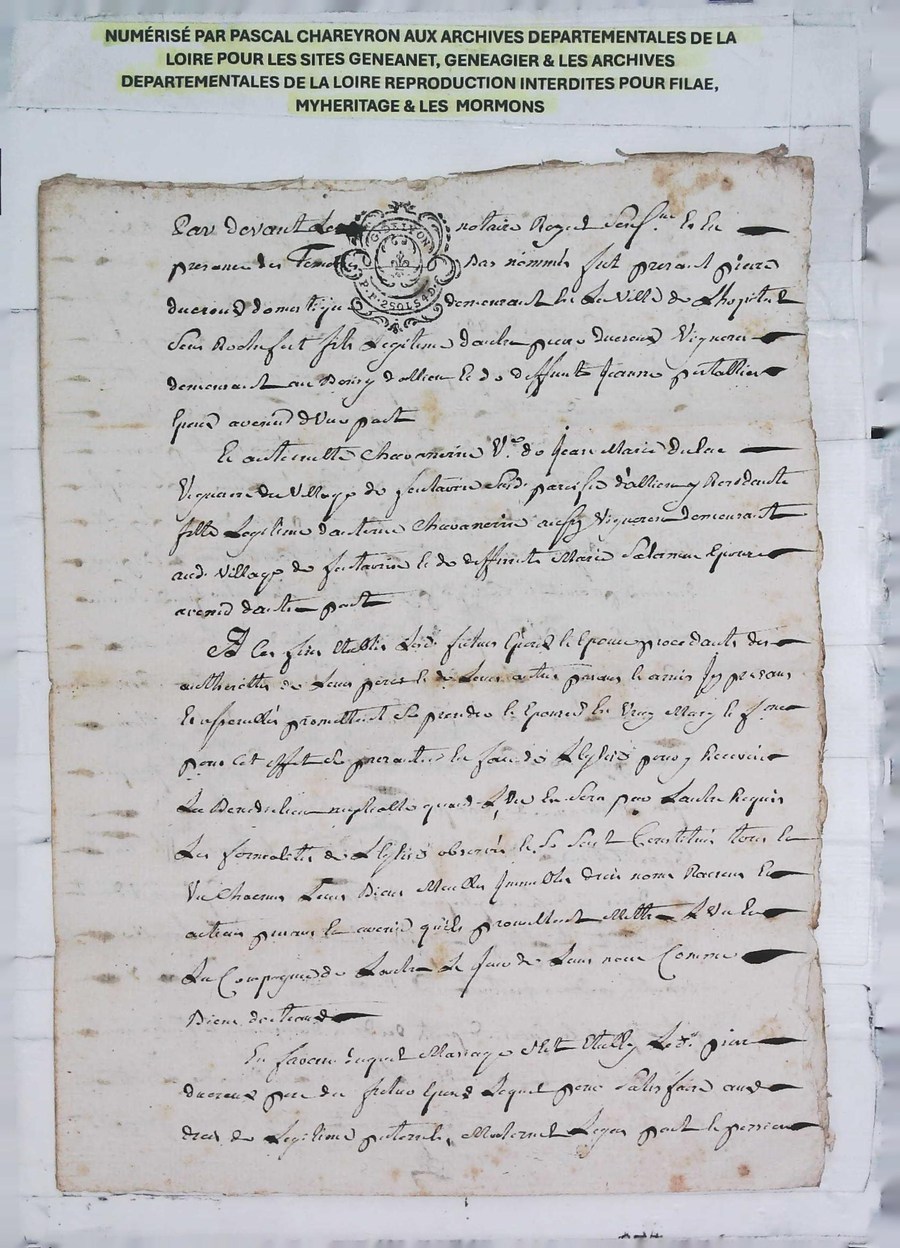 NUMÉRISÉ PAR PASCAL CHAREYRON AUX ARCHIVES DEPARTEMENTALES DE LA
LOIRE POUR LES SITES GENEANET, GENEAGIER & LES ARCHIVES
DEPARTEMENTALES DE LA LOIRE REPRODUCTION INTERDITES POUR FILAE,
MYHERITAGE & LES MORMONS
Par devant Le notaire Royal & En
presence des Temoins bas nommés fut present pierre
ducreux domestique demeurant en La Ville de Lhopital
Sous Rochefort fils Legitime d'autre pierre ducreux Vigneron
demeurant au Bourg d'allieu et de deffunte Jeanne
Epoux avenir d'Une part
Et antoinette Chavanerin V.ve de Jean Marie dulac
Vigneron du Village de parroisse d'allieu y Residante
fille Legitime d'antoine Chavanerin aussy Vigneron demeurant
aud. Village de et de deffunte Marie Epouse
avenir d'autre part
A Ces fins Etablis Lesd. futurs Epoux et Epouse procedants des
authorités de Leurs peres et de Leurs autres parans et amis Icy presans
Et assemblés promettent Se prendre et Epouser En Vray Mary et f.me
pour cet effet Se presanter En face de L'Eglise pour y Recevoir
La Benediction nuptialle quand L'Un En Sera par L'autre Requis
Les formalités de L'Eglise observés et Se Sont Constitués tous et
Un Chacuns Leurs Biens Meubles Immeubles droits noms Raisons Et
actions presans et avenir qu'ils promettent Mettre L'Un En
La Compagnie de L'autre Le Jour de Leurs noces Comme
Biens dotteaux
En faveur duquel Mariage S'est Etably Led. S.r pierre
ducreux pere du futur Epoux Lequel pour Satisfaire aux
droits de Legitime paternels, Maternels Legs part et portion